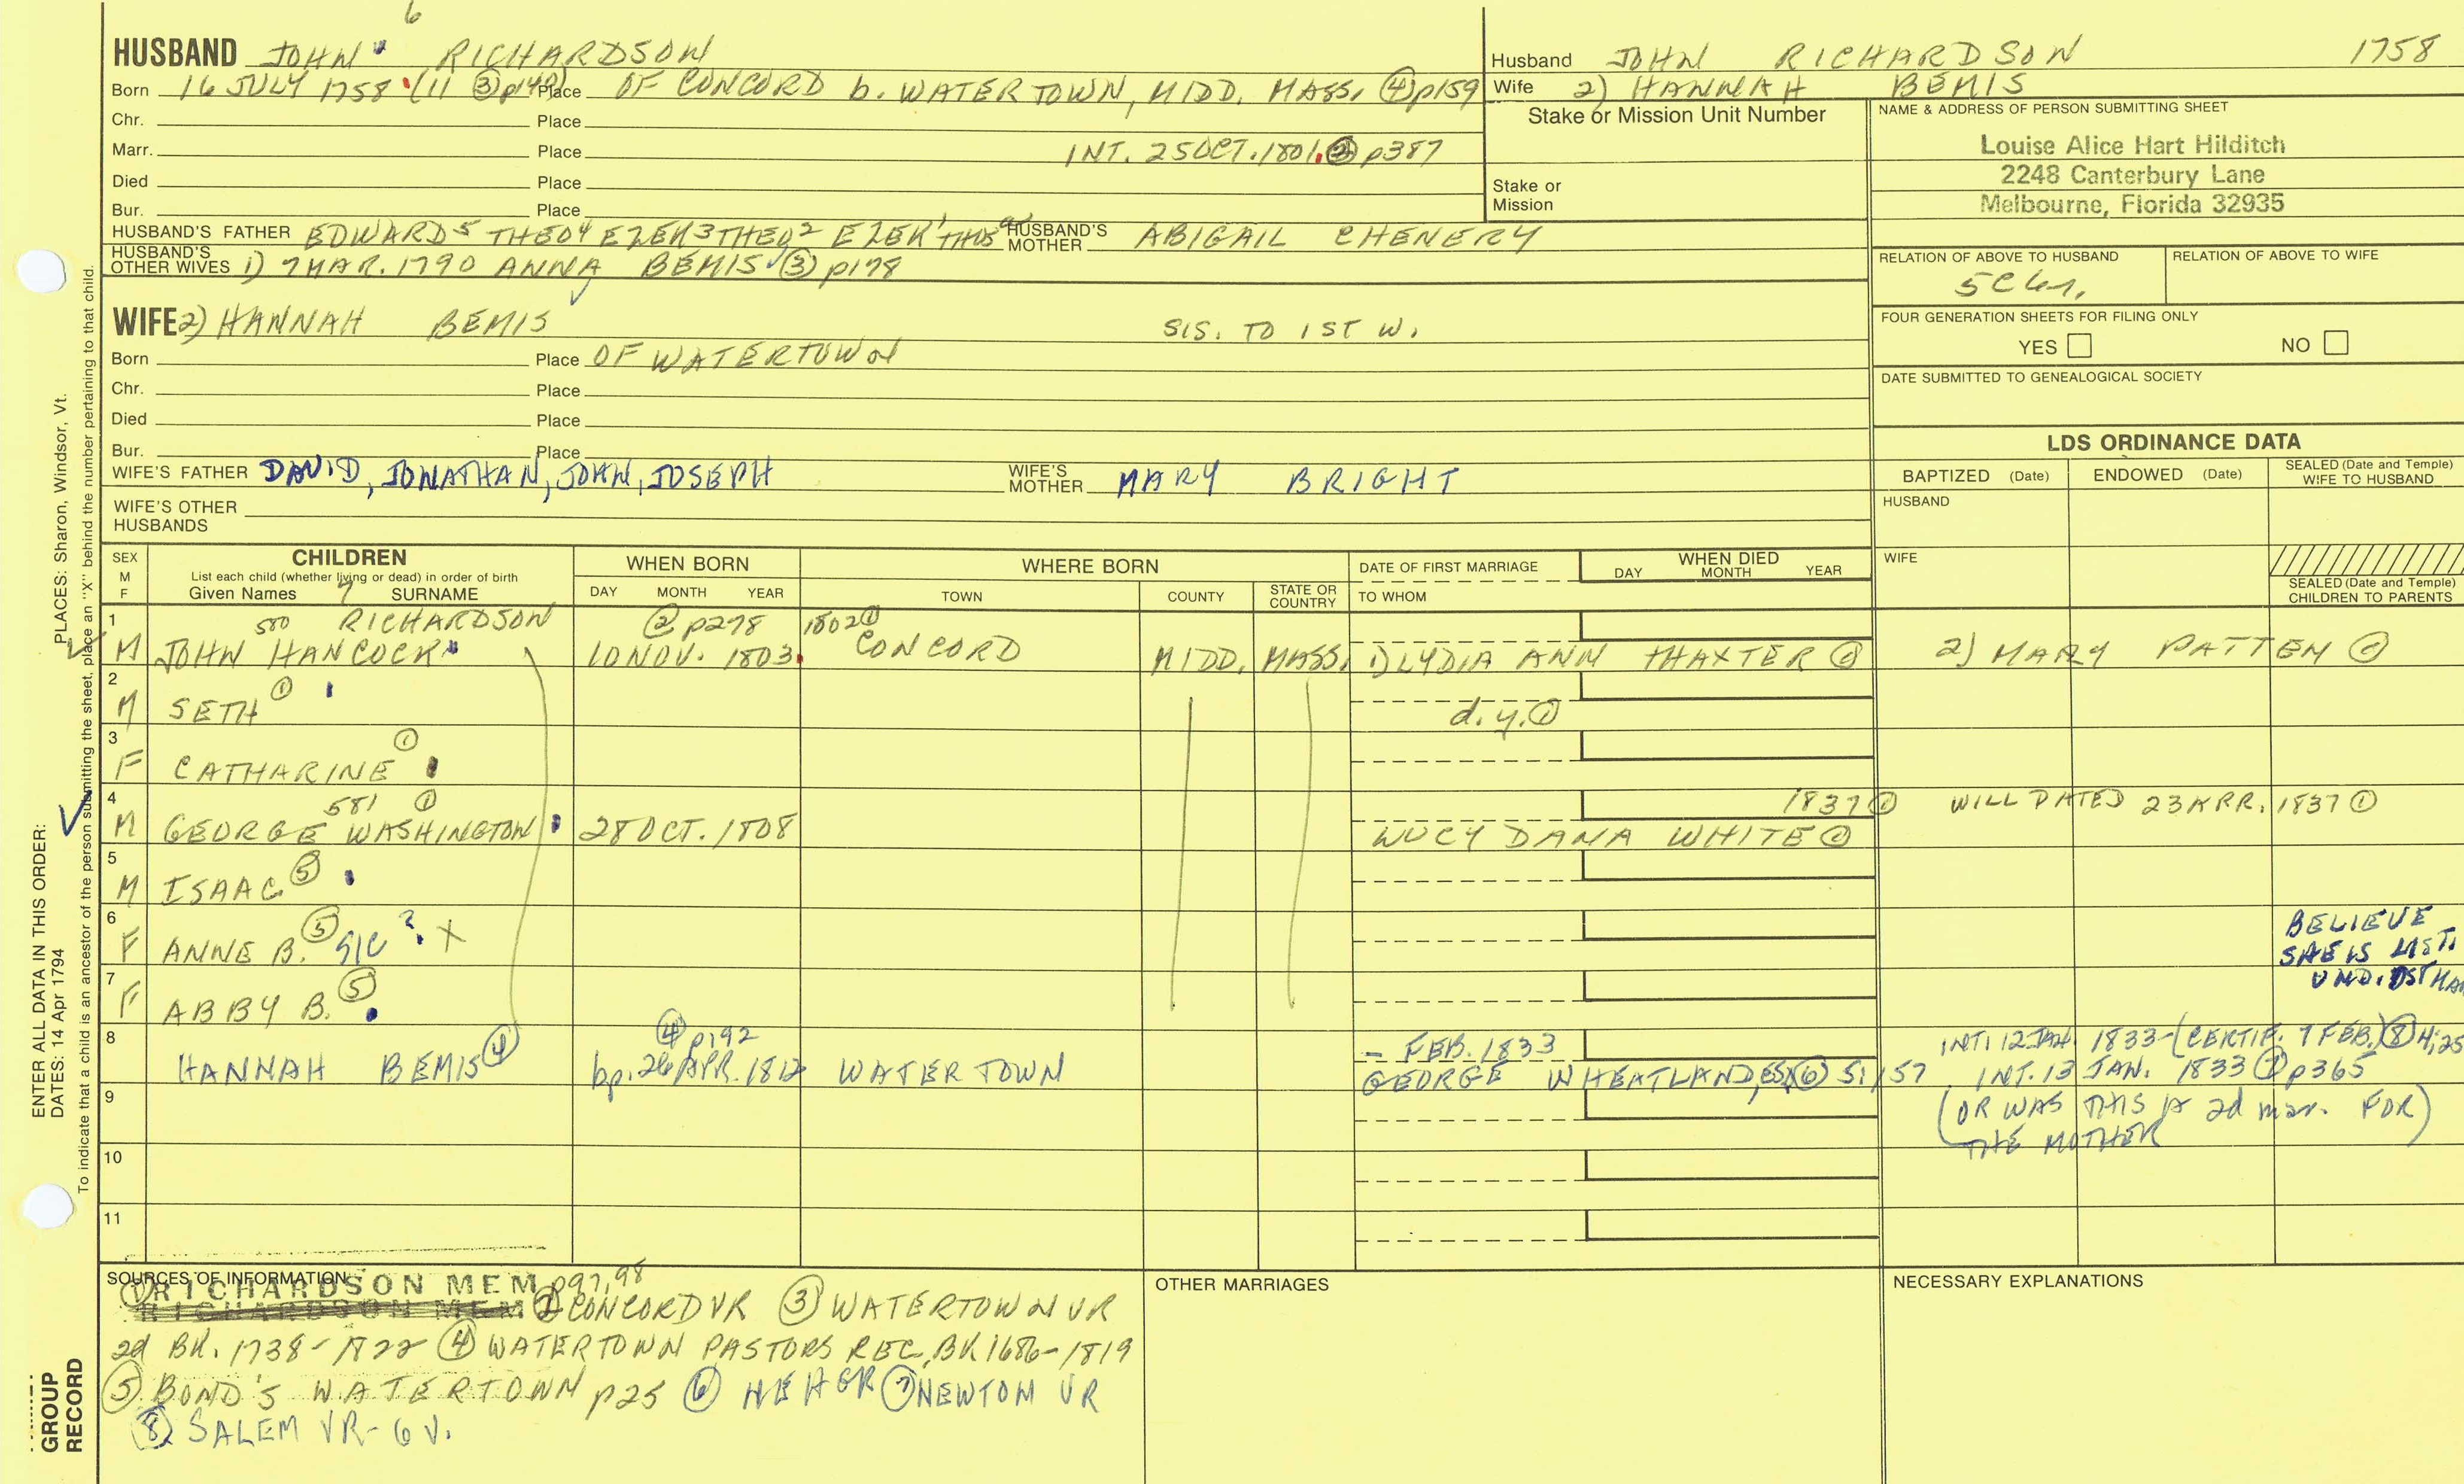 6
HUSBAND JOHN RICHARDSON
Born 16 JULY 1758 (11 ③ p140) Place OF CONCORD b. WATERTOWN, MIDD. MASS. ④ p159
Chr. Place
Marr. Place INT. 25 OCT. 1801. ② p387
Died Place
Bur. Place
HUSBAND'S FATHER EDWARD 5 THEO 4 EZEK 3 THEO 2 EZEK 1 THOS HUSBAND'S MOTHER ABIGAIL CHENERY
HUSBAND'S OTHER WIVES 1) 7 MAR. 1790 ANNA BEMIS ③ p178
WIFE 2) HANNAH BEMIS SIS. TO 1ST W.
Born Place OF WATERTOWN
Chr. Place
Died Place
Bur. Place
WIFE'S FATHER DAVID, JONATHAN, JOHN, JOSEPH WIFE'S MOTHER MARY BRIGHT
WIFE'S OTHER HUSBANDS
Husband JOHN RICHARDSON 1758
Wife 2) HANNAH BEMIS
Stake or Mission Unit Number
Stake or Mission
NAME & ADDRESS OF PERSON SUBMITTING SHEET
Louise Alice Hart Hilditch
2248 Canterbury Lane
Melbourne, Florida 32935
RELATION OF ABOVE TO HUSBAND RELATION OF ABOVE TO WIFE
FOUR GENERATION SHEETS FOR FILING ONLY
YES NO
DATE SUBMITTED TO GENEALOGICAL SOCIETY
LDS ORDINANCE DATA
BAPTIZED (Date) ENDOWED (Date) SEALED (Date and Temple) WIFE TO HUSBAND
HUSBAND
WIFE
SEALED (Date and Temple) CHILDREN TO PARENTS
SEX M F
CHILDREN
List each child (whether living or dead) in order of birth
Given Names 7 SURNAME
WHEN BORN
DAY MONTH YEAR
WHERE BORN
TOWN COUNTY STATE OR COUNTRY
DATE OF FIRST MARRIAGE
TO WHOM
WHEN DIED
DAY MONTH YEAR
1 580 RICHARDSON ② p278 1802 ①
M JOHN HANCOCK 10 NOV. 1803. CONCORD MIDD. MASS. 1) LYDIA ANN THAXTER ① 2) MARY PATTEN ①
2
M SETH ① d.y. ①
3
F CATHARINE ①
4 581 ① 1837 ① WILL DATED 23 APR. 1837 ①
M GEORGE WASHINGTON 28 OCT. 1808 LUCY DANA WHITE ①
5
M ISAAC ⑤
6
F ANNE B. ⑤ SIC ? X BELIEVE SHE IS LIST.
7
F ABBY B. ⑤
8 ④ p192 - FEB. 1833 INT. 12 JAN. 1833 - (CERTIF. 7 FEB.) ⑧ 4;25
HANNAH BEMIS ④ bp. 26 APR. 1812 WATERTOWN GEORGE WHEATLAND, ESQ ⑥ 51/57 INT. 13 JAN. 1833 ⑦ p365
9 (OR WAS THIS A 2d mar. FOR)
THE MOTHER
10
11
SOURCES OF INFORMATION
① RICHARDSON MEM p97,98
RICHARDSON MEM ② CONCORD VR ③ WATERTOWN VR
2d BK. 1738-1822 ④ WATERTOWN PASTORS REC. BK 1686-1819
⑤ BOND'S WATERTOWN p25 ⑥ NEHGR ⑦ NEWTON VR
⑧ SALEM VR- 6 V.
OTHER MARRIAGES
NECESSARY EXPLANATIONS
ENTER ALL DATA IN THIS ORDER:
DATES: 14 Apr 1794 PLACES: Sharon, Windsor, Vt.
To indicate that a child is an ancestor of the person submitting the sheet, place an "X" behind the number pertaining to that child.
GROUP
RECORD